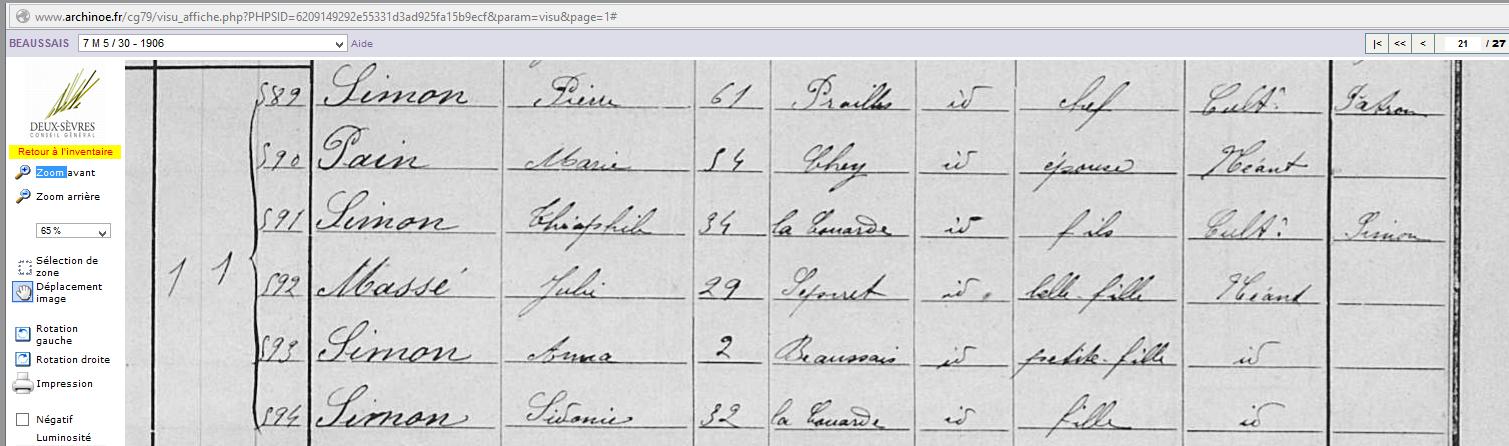 www.archinoe.fr/cg79/visu_affiche.php?PHPSID=6209149292e55331d3ad925fa15b9ecf&param=visu&page=1#
BEAUSSAIS 7 M 5 / 30 - 1906 Aide |< << < 21 / 27
DEUX-SÈVRES
CONSEIL GÉNÉRAL
Retour à l'inventaire
Zoom avant
Zoom arrière
65 %
Sélection de
zone
Déplacement
image
Rotation
gauche
Rotation droite
Impression
Négatif
Luminosité
1 1
589 Simon Pierre 61 Prailles id chef Cultr Patron
590 Pain Marie 54 Chey id épouse Néant
591 Simon Théophile 34 la Couarde id fils Cultr Simon
592 Massé Julie 29 Sepvret id belle-fille Néant
593 Simon Anna 2 Beaussais id petite-fille id
594 Simon Sidonie 32 la Couarde id fille id